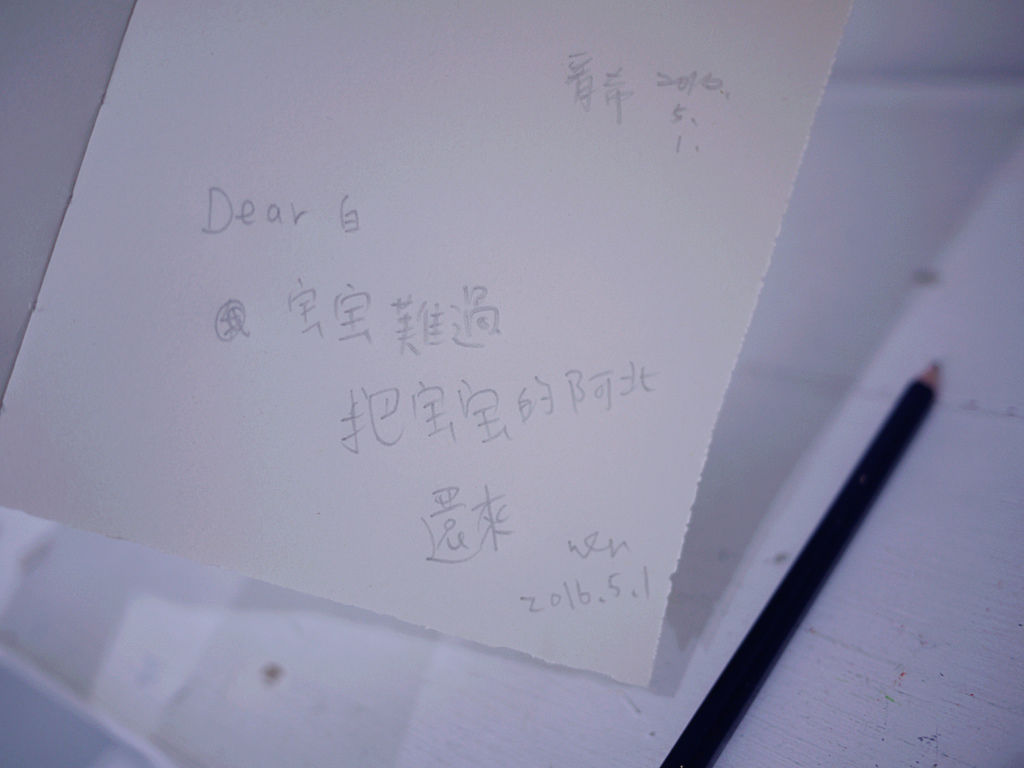 希 2016.
5.
1.
Dear 白
宝宝難過
把宝宝的阿北
還來
wen
2016.5.1